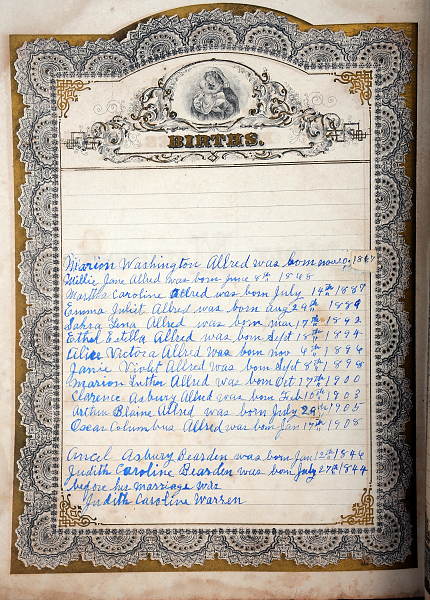 BIRTHS.
Marion Washington Allred was born nov 10, 1867
Millie Jane Allred was born june 8th 1868
Martha Caroline Allred was born July 14th 1887
Emma Juliet Allred was born aug 24th 1889
Lena Allred was born mar 17th 1892
Ethel Estella Allred was born Sept 18th 1894
Alice Victora Allred was born nov 4th 1896
Janie Violet Allred was born Sept 8th 1898
Marion Luther Allred was born Oct 17th 1900
Clarence Asbury Allred was born Feb 10th 1903
Arthur Blaine Allred was born July 29th 1905
Oscar Columbus Allred was born Jan 17th 1908
Ancel Asbury Bearden was born Jan 12th 1846
Judith Caroline Bearden was born July 27th 1844
before his marriage was
Judith Caroline Warren